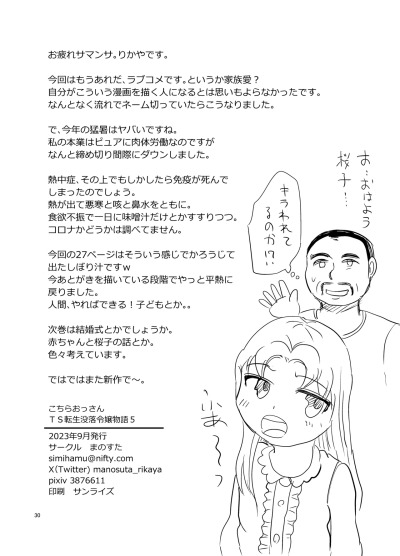 お疲れサマンサ。りかやです。
今回はもうあれだ、ラブコメです。というか家族愛？
自分がこういう漫画を描く人になるとは思いもよらなかったです。
なんとなく流れでネーム切っていたらこうなりました。
で、今年の猛暑はヤバいですね。
私の本業はピュアに肉体労働なのですが
なんと締め切り間際にダウンしました。
熱中症、その上でもしかしたら免疫が死んで
しまったのでしょう。
熱が出て悪寒と咳と鼻水をともに。
食欲不振で一日に味噌汁だけとかすすりつつ。
コロナかどうかは調べてません。
今回の27ページはそういう感じでかろうじて
出たしぼり汁ですｗ
今あとがきを描いている段階でやっと平熱に
戻りました。
人間、やればできる！子どもとか。。
次巻は結婚式とかでしょうか。
赤ちゃんと桜子の話とか。
色々考えています。
ではではまた新作で～。
お…おはよう
桜子…
キラわれて
るのか!?
ふあ〜っ
こちらおっさん
ＴＳ転生没落令嬢物語５
2023年9月発行
サークル　まのすた
simihamu@nifty.com
X(Twitter) manosuta_rikaya
pixiv 3876611
印刷　サンライズ
30